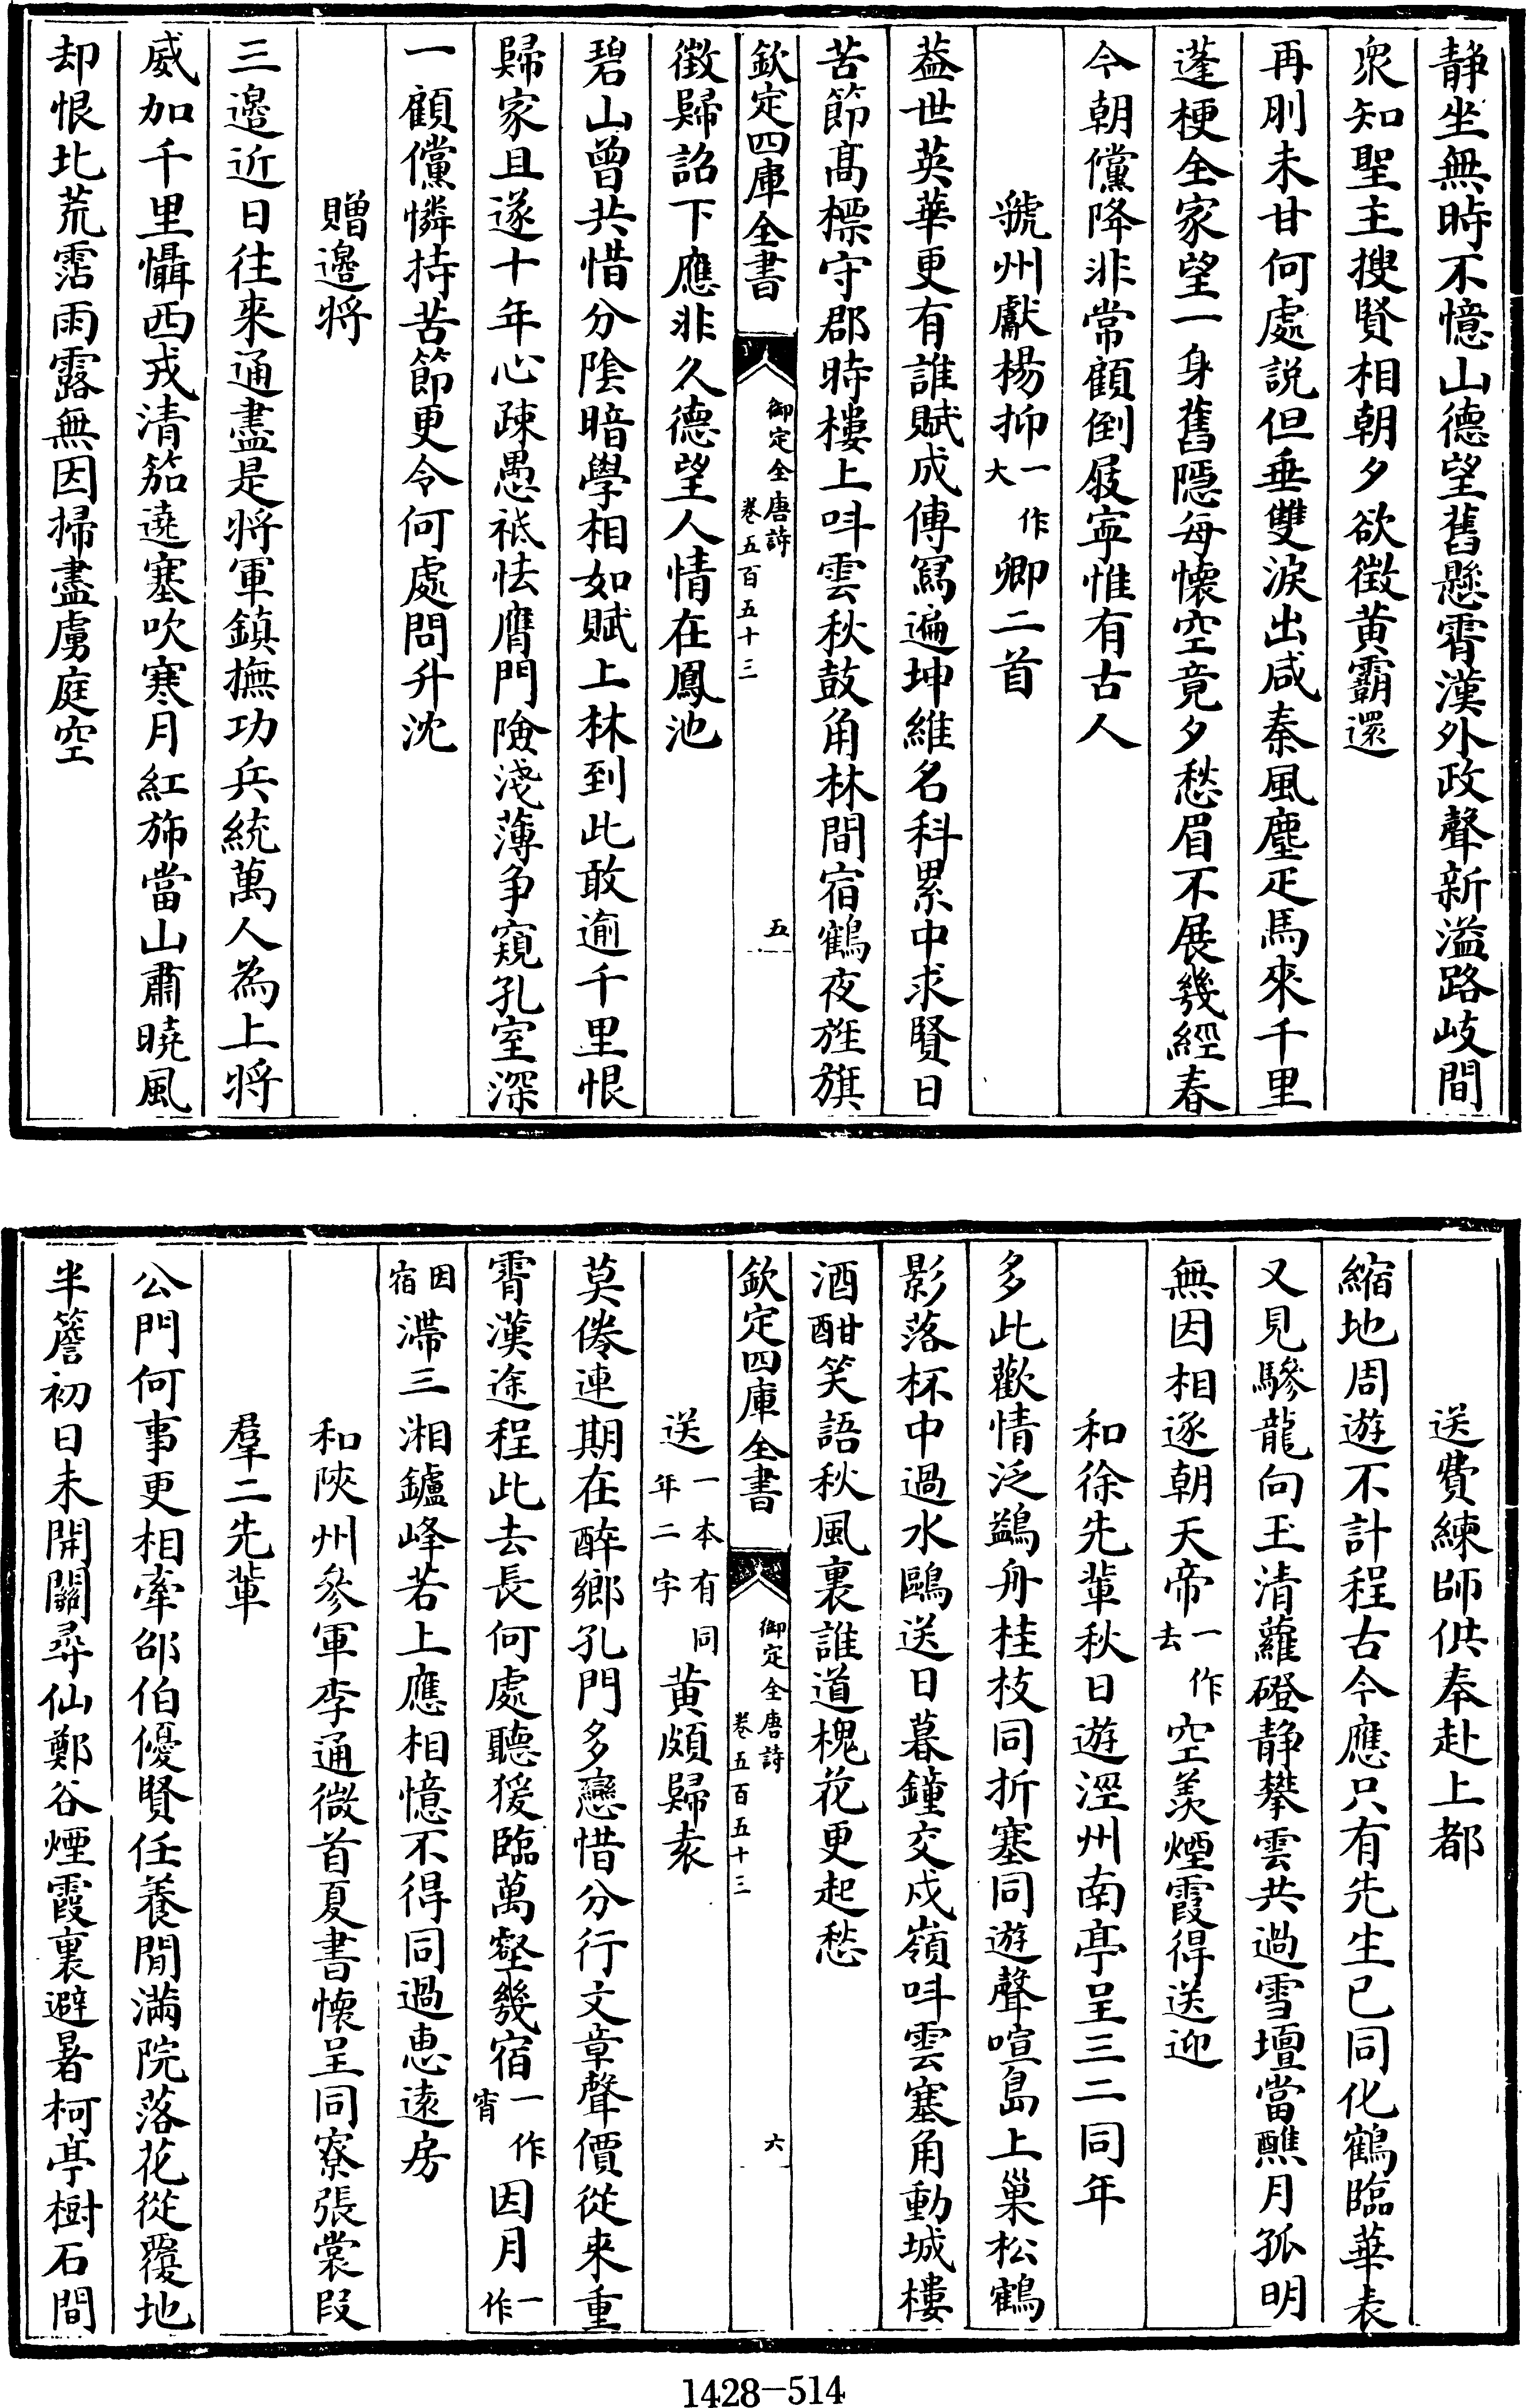 静坐無時不憶山德望舊懸霄漢外政聲新溢路岐間
衆知聖主搜賢相朝夕欲徴黄霸還
再刖未甘何處説但垂雙淚出咸秦風塵疋馬來千里
蓬梗全家望一身舊隱每懷空竟夕愁眉不展幾經春
今朝儻降非常顧倒屐寧惟有古人
虢州獻楊抑一作大卿二首
葢世英華更有誰賦成傳寫遍坤維名科累中求賢日
苦節髙標守郡時樓上呌雲秋鼓角林間宿鶴夜旌旗
欽定四庫全書
御定全唐詩
卷五百五十三
五
徴歸詔下應非久德望人情在鳳池
碧山曾共惜分陰暗學相如賦上林到此敢逾千里恨
歸家且遂十年心疎愚祗怯膺門險淺薄争窺孔室深
一顧儻憐持苦節更令何處問升沈
贈邉將
三邉近日往來通盡是將軍鎮撫功兵統萬人為上將
威加千里懾西戎清笳遶塞吹寒月紅斾當山肅曉風
却恨北荒霑雨露無因掃盡虜庭空
送費練師供奉赴上都
縮地周遊不計程古今應只有先生已同化鶴臨華表
又見驂龍向玉清蘿磴静攀雲共過雪壇當醮月孤明
無因相逐朝天帝一作去空羡煙霞得送迎
和徐先輩秋日遊涇州南亭呈二三同年
多此歡情泛鷁舟桂枝同折塞同遊聲喧島上巢松鶴
影落杯中過水鷗送日暮鐘交戍嶺呌雲塞角動城樓
酒酣笑語秋風裏誰道槐花更起愁
欽定四庫全書
御定全唐詩
卷五百五十三
六
送一本有同年二字黄頗歸袁
莫倦連期在醉鄉孔門多戀惜分行文章聲價從來重
霄漢途程此去長何處聽猨臨萬壑幾宿一作宵因月一作
因宿滯三湘鑪峰若上應相憶不得同過惠遠房
和陜州參軍李通微首夏書懷呈同寮張裳段
羣二先輩
公門何事更相牽邵伯優賢任養閒滿院落花從覆地
半簷初日未開關尋仙鄭谷煙霞裏避暑柯亭樹石間
1428-514